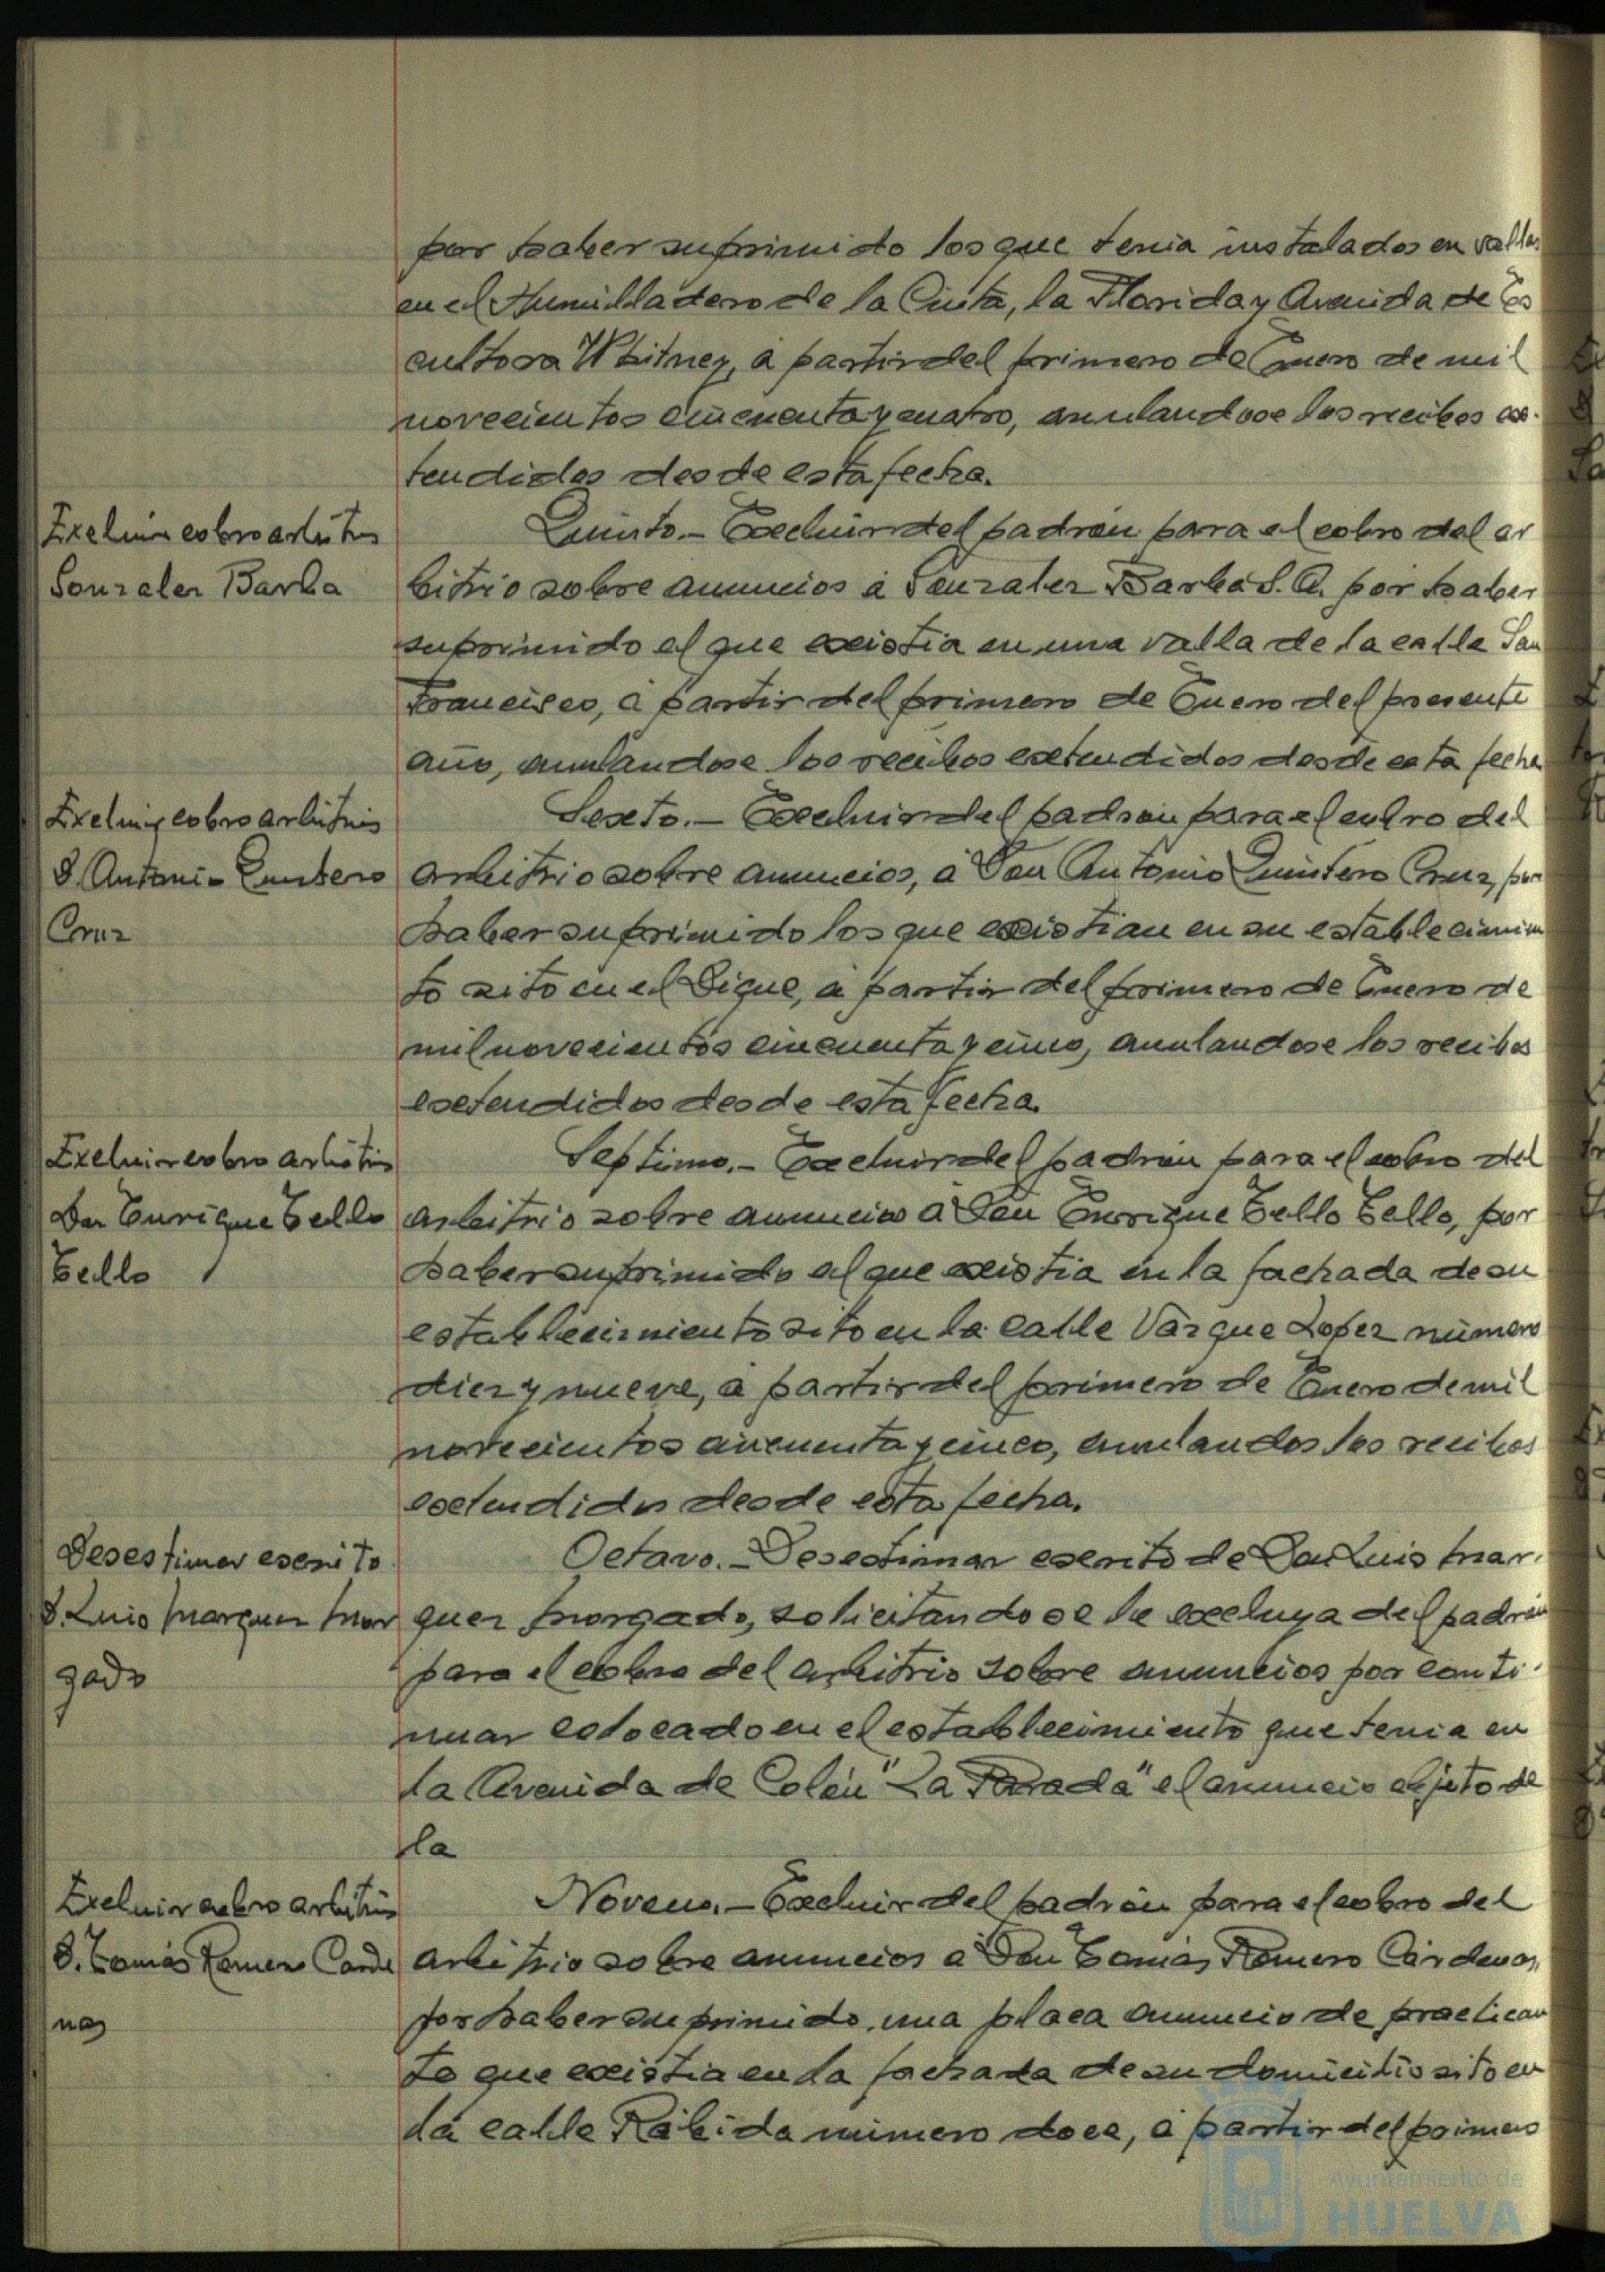 por haber suprimido los que tenia instalados en vallas
en el Humilladero de la Cinta, la Florida y Avenida de Es
cultora Whitney, a partir del primero de Enero de mil
novecientos cincuenta y cuatro, anulandose los recibos ex-
tendidos desde esta fecha.
Excluir cobro arbitrios
Gonzalez Barba
Quinto.- Excluir del padrón para el cobro del ar
bitrio sobre anuncios a Gonzalez Barba S.A. por haber
suprimido el que existia en una valla de la calle San
Francisco, a partir del primero de Enero del presente
año, anulandose los recibos extendidos desde esta fecha
Excluir cobro arbitrios
D. Antonio Quintero
Cruz
Sexto.- Excluir del padrón para el cobro del
arbitrio sobre anuncios, a Don Antonio Quintero Cruz, por
haber suprimido los que existian en su establecimien
to sito en el Dique, a partir del primero de Enero de
mil novecientos cincuenta y cinco, anulandose los recibos
extendidos desde esta fecha.
Excluir cobro arbitrios
Don Enrique Tello
Tello
Septimo.- Excluir del padrón para el cobro del
arbitrio sobre anuncios a Don Enrique Tello Tello, por
haber suprimido el que existia en la fachada de su
establecimiento sito en la calle Vazque Lopez número
diez y nueve, a partir del primero de Enero de mil
novecientos cincuenta y cinco, anulandos los recibos
extendidos desde esta fecha.
Desestimar escrito
D. Luis Marquez Mor
gado
Octavo.- Desestimar escrito de Don Luis Mar-
quez Morgado, solicitando se le excluya del padrón
para el cobro del arbitrio sobre anuncios por conti-
nuar colocado en el establecimiento que tenia en
la Avenida de Colón "La Parada" el anuncio objeto de
la
Excluir cobro arbitrios
D. Tomás Romero Carde
nas
Noveno.- Excluir del padrón para el cobro del
arbitrio sobre anuncios a Don Tomás Romero Cárdenas,
por haber suprimido una placa anuncio de practican
te que existia en la fachada de su domicilio sito en
la calle Rábida número doce, a partir del primero
Ayuntamiento de
HUELVA